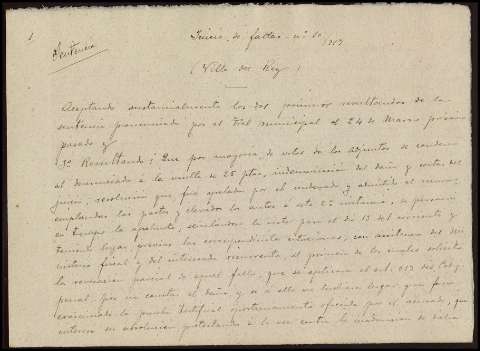 Sentencia
Juicio de faltas - nº 20
1913
(Villa del Rey)
Aceptando sustancialmente los dos primeros resultandos de la
sentencia pronunciada por el Tral municipal el 24 de Marzo próximo
pasado y
3º Resultando: Que por mayoría de votos de los adjuntos se condenó
al denunciado á la multa de 25 ptas, indemnización del daño y costas del
juicio, resolución que fué apelada por el condenado y admitido el recurso,
emplazadas las partes y elevados los autos á esta 2ª instancia, se personó
en tiempo la apelante, señalándose la vista para el día 13 del corriente y
teniendo lugar previas las correspondientes citaciones, con asistencia del Mi
nisterio fiscal y del interesado recurrente, el primero de los cuales solicitó
la revocación parcial de aquel fallo, que se aplicara el art. del Código
penal, por su cuantía el daño y á ello no hubiera lugar, que fuera
examinada la prueba testifical oportunamente ofrecida por el acusado, que
interesó su absolución protestando á la vez contra la inadmisión de dicha